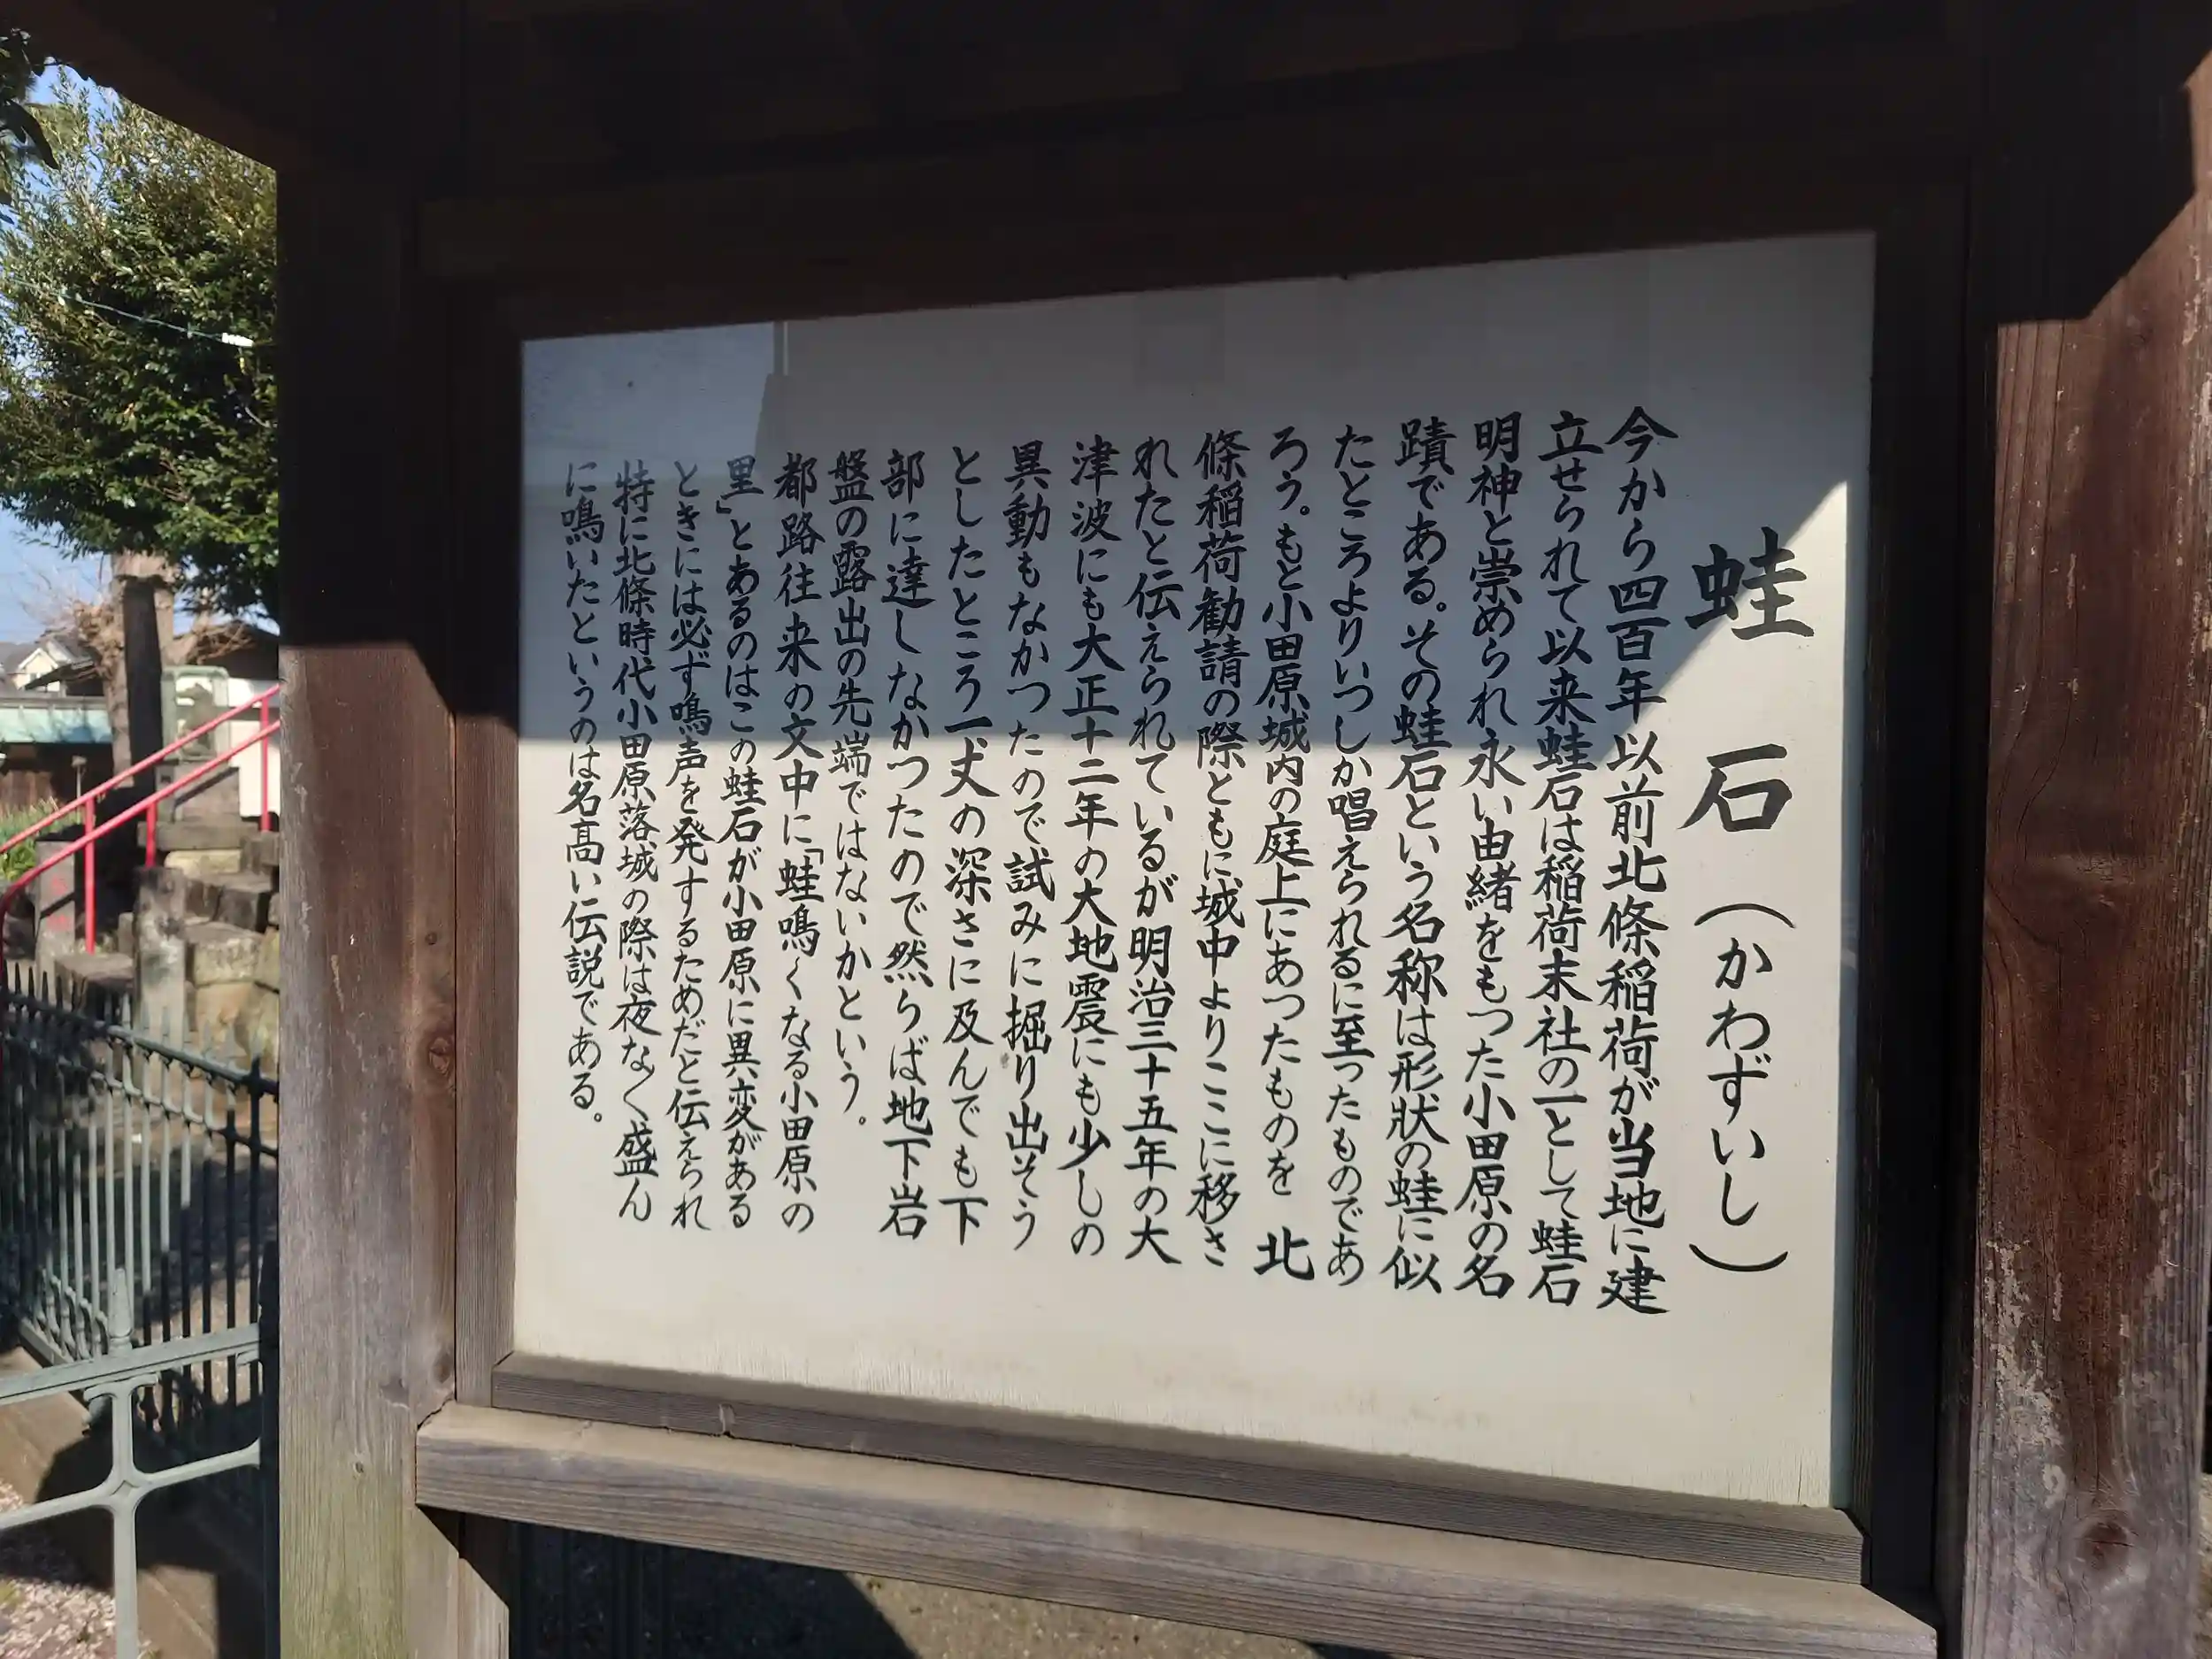 蛙石（かわずいし）
今から四百年以前北條稲荷が当地に建
立せられて以来蛙石は稲荷末社の一として蛙石
明神と崇められ永い由緒をもつた小田原の名
蹟である。その蛙石という名称は形状の蛙に似
たところよりいつしか唱えられるに至ったものであ
ろう。もと小田原城内の庭上にあつたものを 北
條稲荷勧請の際ともに城中よりここに移さ
れたと伝えられているが明治三十五年の大
津波にも大正十二年の大地震にも少しの
異動もなかつたので試みに掘り出そう
としたところ一丈の深さに及んでも下
部に達しなかつたので然らば地下岩
盤の露出の先端ではないかという。
都路往来の文中に「蛙鳴くなる小田原の
里」とあるのはこの蛙石が小田原に異変がある
ときには必ず鳴声を発するためだと伝えられ
特に北條時代小田原落城の際は夜なく盛ん
に鳴いたというのは名高い伝説である。